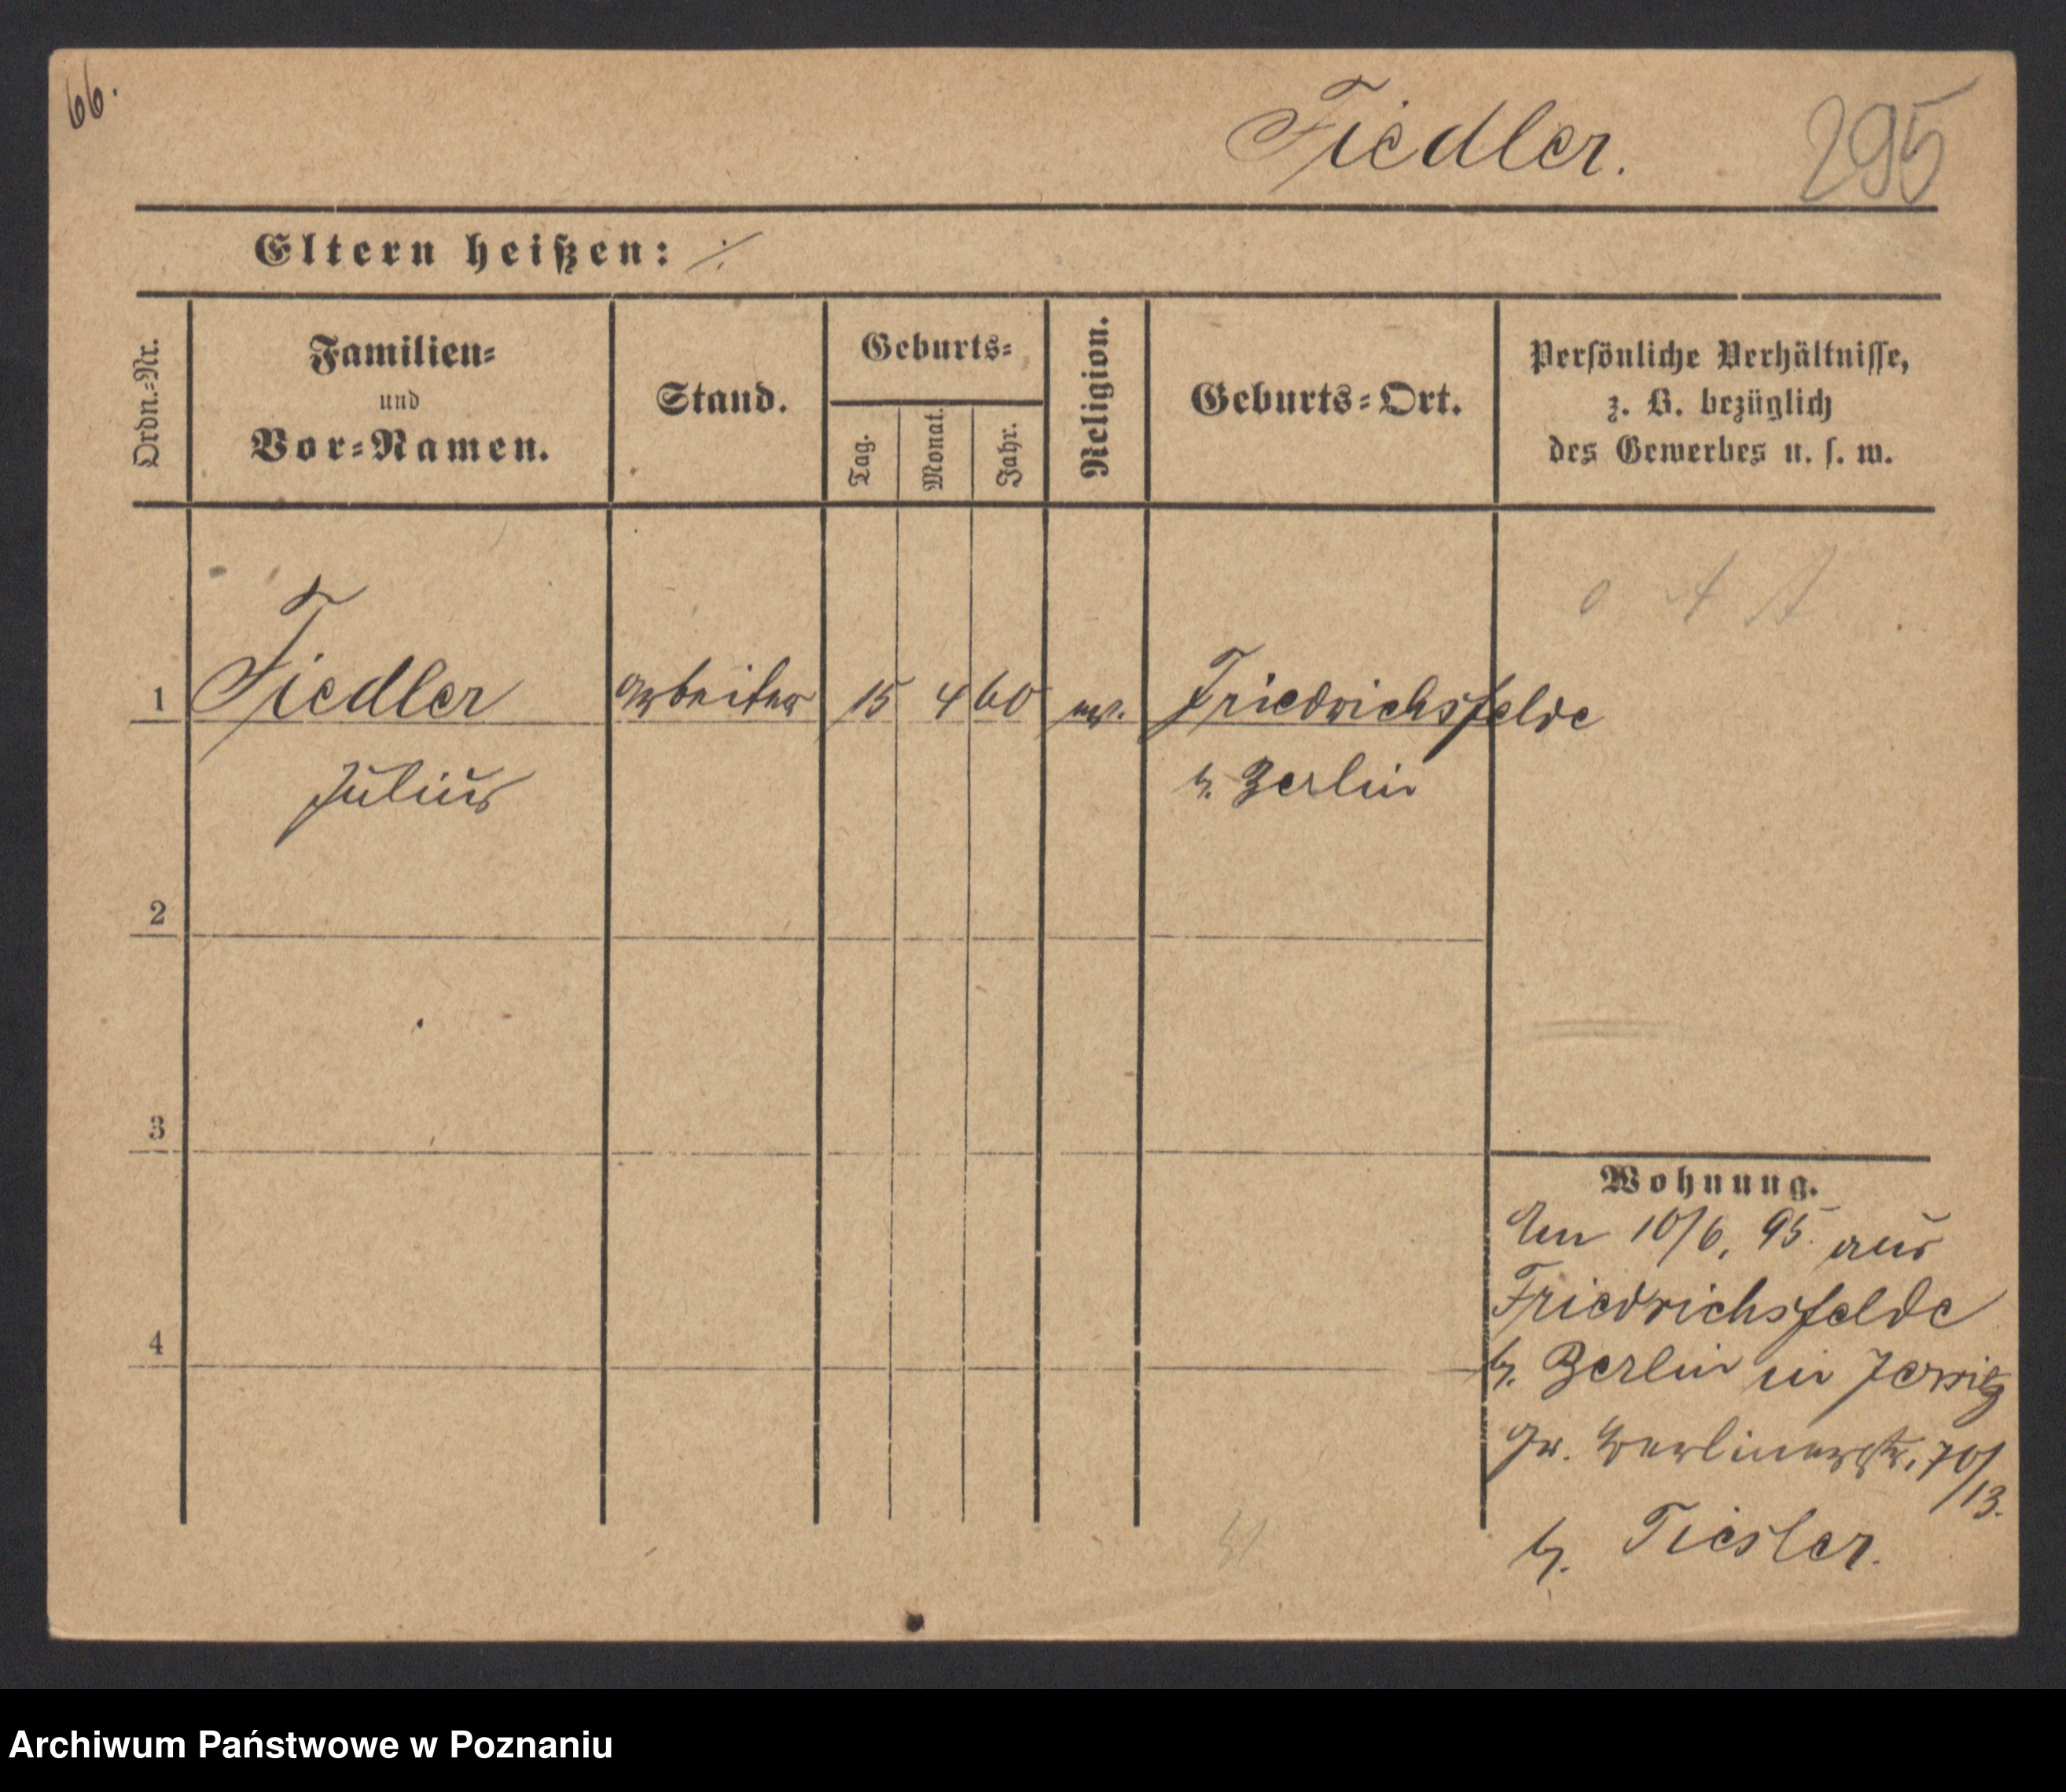 66.
Fiedler.
295
Eltern heißen: ./.
Ordn.=Nr.
Familien=
und
Vor=Namen.
Stand.
Geburts=
Tag.
Monat.
Jahr.
Religion.
Geburts=Ort.
Persönliche Verhältnisse,
z. B. bezüglich
des Gewerbes u. s. w.
1 Fiedler Arbeiter 15 4 60 ev. Friedrichsfelde
Julius b. Berlin
2
3
4
Wohnung.
Am 10/6. 95. aus
Friedrichsfelde
b. Berlin in Jersitz
Gr. Berlinerstr. 70/
13.
b. Tiesler.
Archiwum Państwowe w Poznaniu